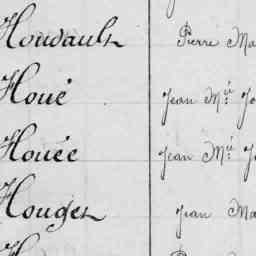 Houdault Pierre Ma
Houé Jean M.ie Jo
Houée Jean M.ie Jo
Houget Jean Ma